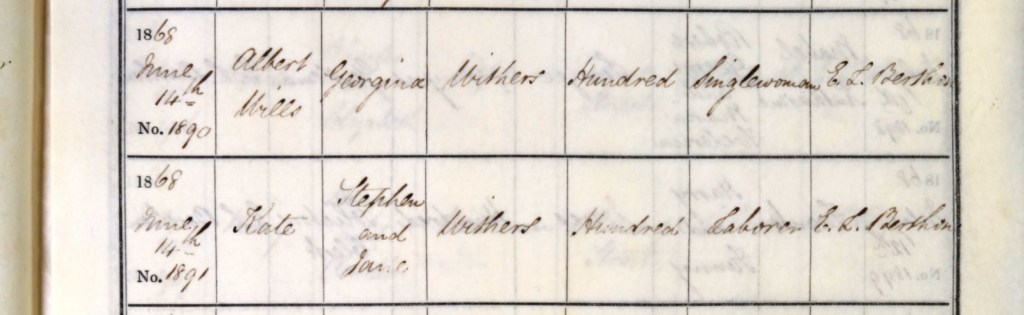 1868
June
14th
No. 1890
Albert
Mills
Georgina
Withers
Hundred
Singlewoman
E. L. Berthon
1868
June
14th
No. 1891
Kate
Stephen
and
Jane
Withers
Hundred
Laborer
E. L. Berthon